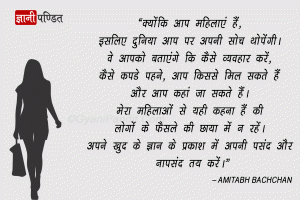 ज्ञानीपण्डित
“क्योंकि आप महिलाएं हैं,
इसलिए दुनिया आप पर अपनी सोच थोपेंगी।
वे आपको बताएंगे कि कैसे व्यवहार करें,
कैसे कपडे पहने, आप किससे मिल सकते हैं
और आप कहां जा सकते हैं।
मेरा महिलाओं से यही कहना हैं की
लोगों के फैसले की छाया में न रहें।
अपने खुद के ज्ञान के प्रकाश में अपनी पसंद और
नापसंद तय करें।”
– AMITABH BACHCHAN